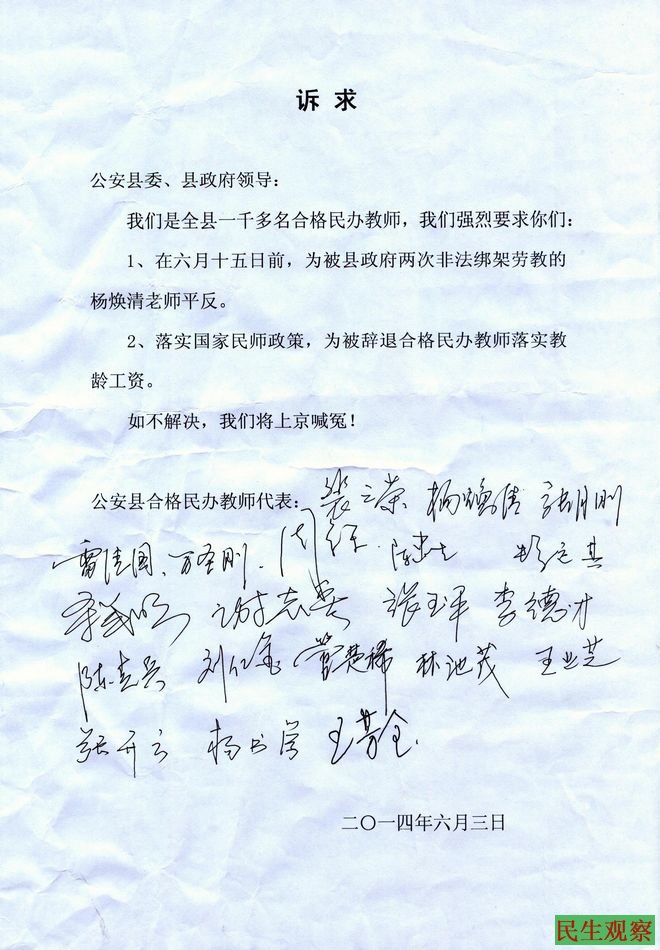 诉 求
公安县委、县政府领导：
我们是全县一千多名合格民办教师，我们强烈要求你们：
1、在六月十五日前，为被县政府两次非法绑架劳教的
杨焕清老师平反。
2、落实国家民师政策，为被辞退合格民办教师落实教
龄工资。
如不解决，我们将上京喊冤！
公安县合格民办教师代表：裴云荣 杨焕清 张月刚
雷清国、万圣刚
谢志英 张玉平 李德才
刘仁金 管楚稀 林池茂 王业芝
张开云 杨书
二〇一四年六月三日
民生观察